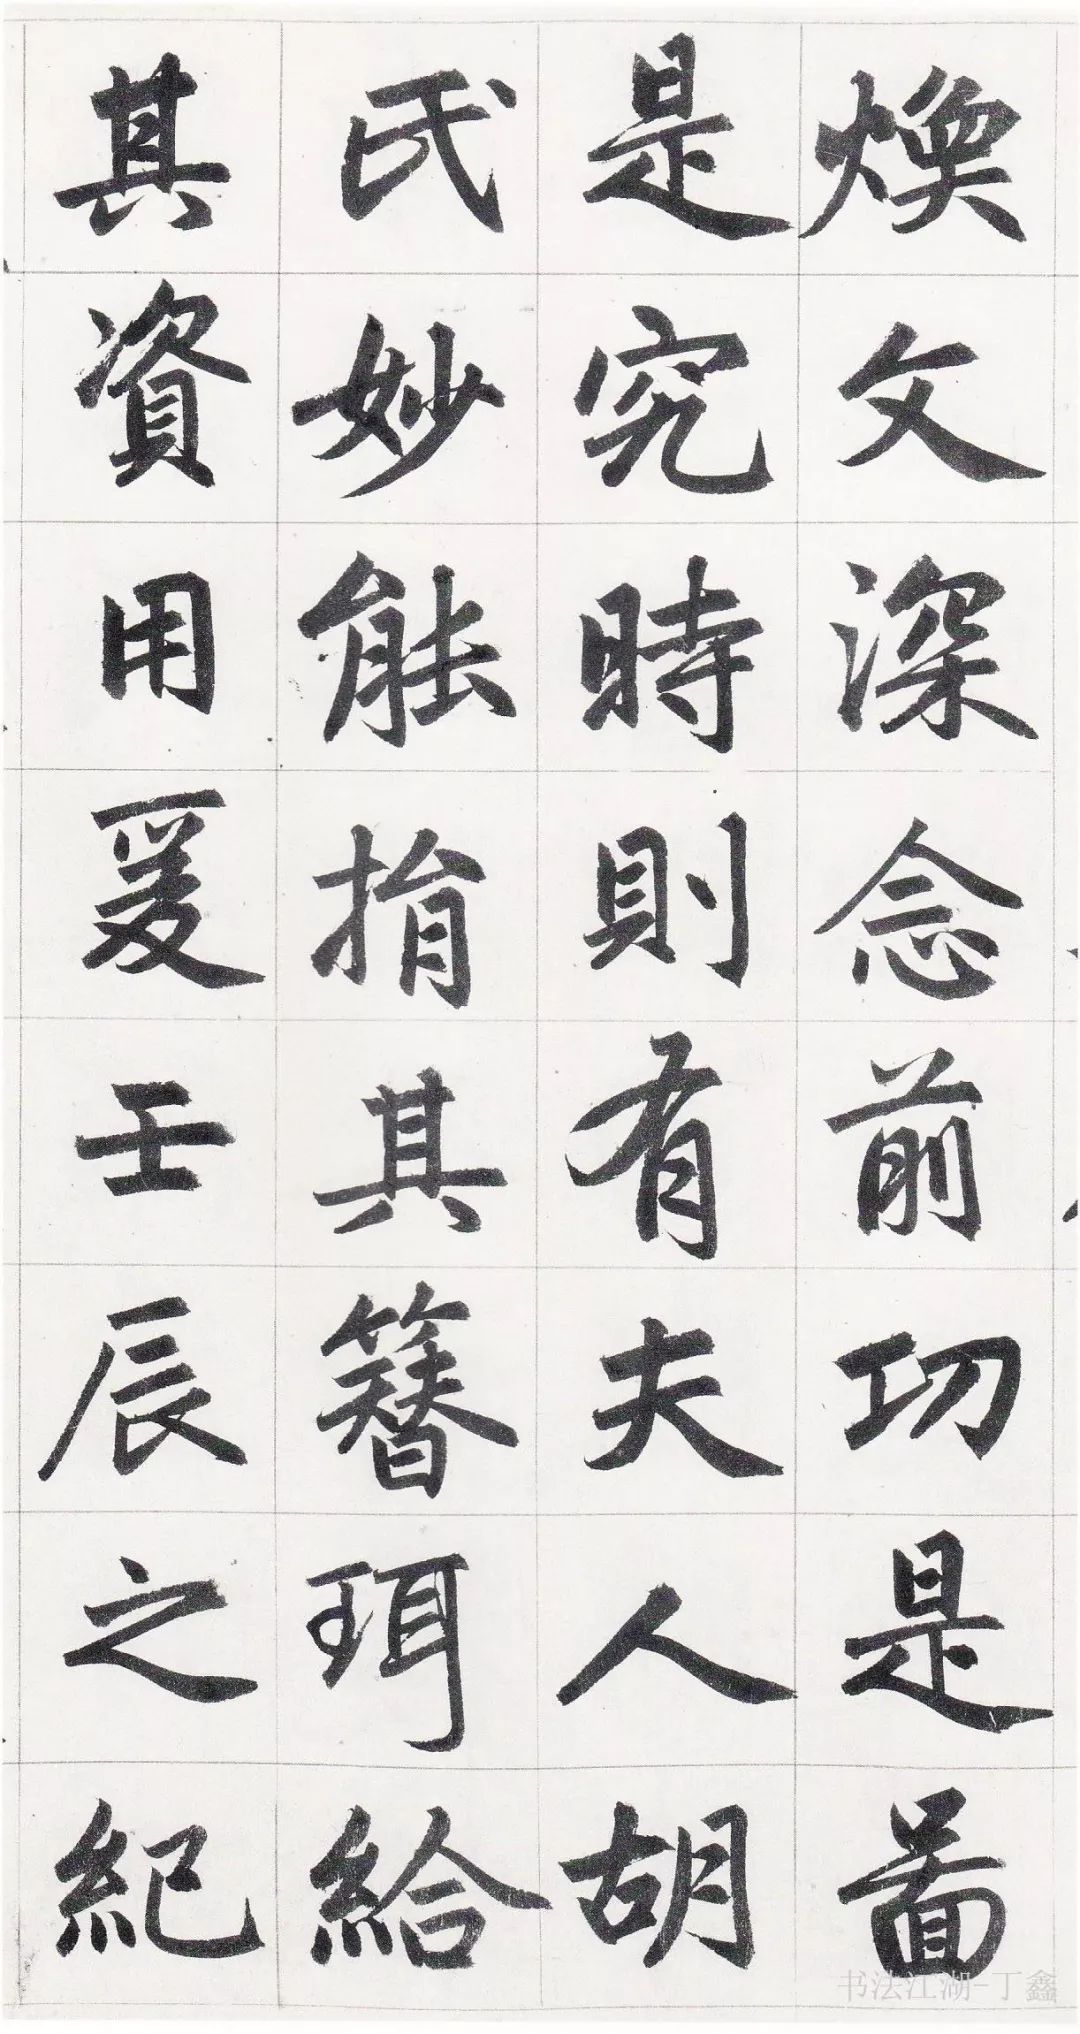 煥文深念前功是啚
是究時則有夫人胡
氏妙能捐其簪珥給
其資用爰壬辰之紀
书法江湖-丁鑫